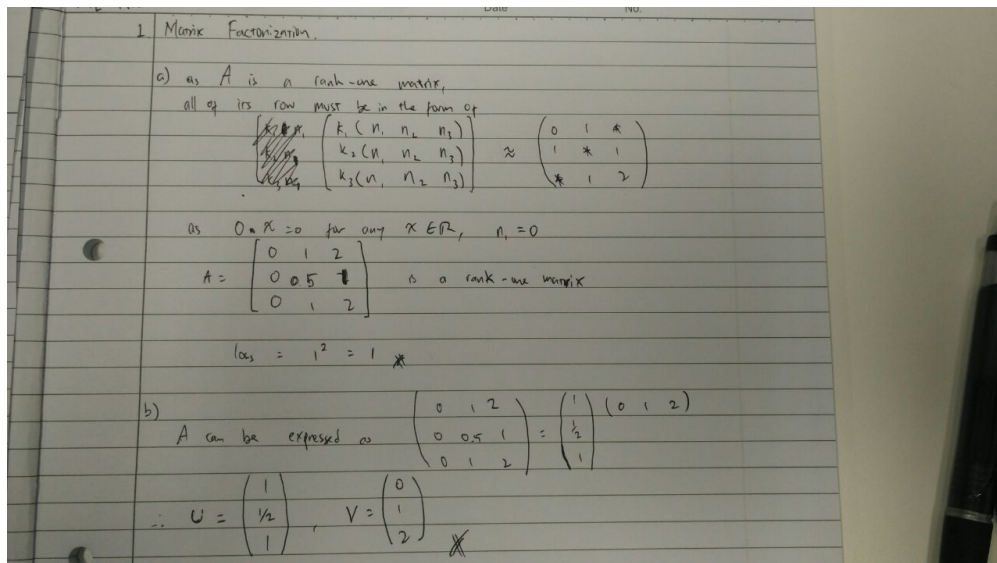 Date No.
1 Matrix Factorization.
a) as A is a rank-one matrix,
all of its row must be in the form of
[ k₁ ( n₁ n₂ n₃ ) ] ≈ ( 0 1 * )
[ k₂ ( n₁ n₂ n₃ ) ] ( 1 * 1 )
[ k₃ ( n₁ n₂ n₃ ) ] ( * 1 2 )
as 0 * x = 0 for any x ∈ ℝ, n₁ = 0
[ 0 1 2 ]
A = [ 0 0.5 1 ] is a rank-one matrix
[ 0 1 2 ]
loss = 1² = 1
b) ( 0 1 2 ) ( 1 ) ( 0 1 2 )
A can be expressed as ( 0 0.5 1 ) = ( 1/2 )
( 0 1 2 ) ( 1 )
( 1 ) ( 0 )
∴ U = ( 1/2 ) , V = ( 1 )
( 1 ) ( 2 )